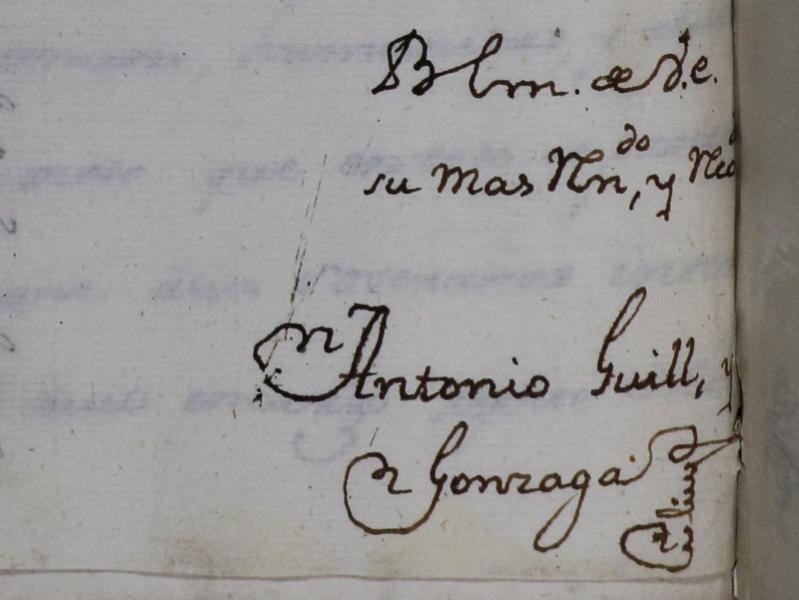 B l m. de V. e.
su mas Rn,do y
Antonio Guill, y
Gonzaga